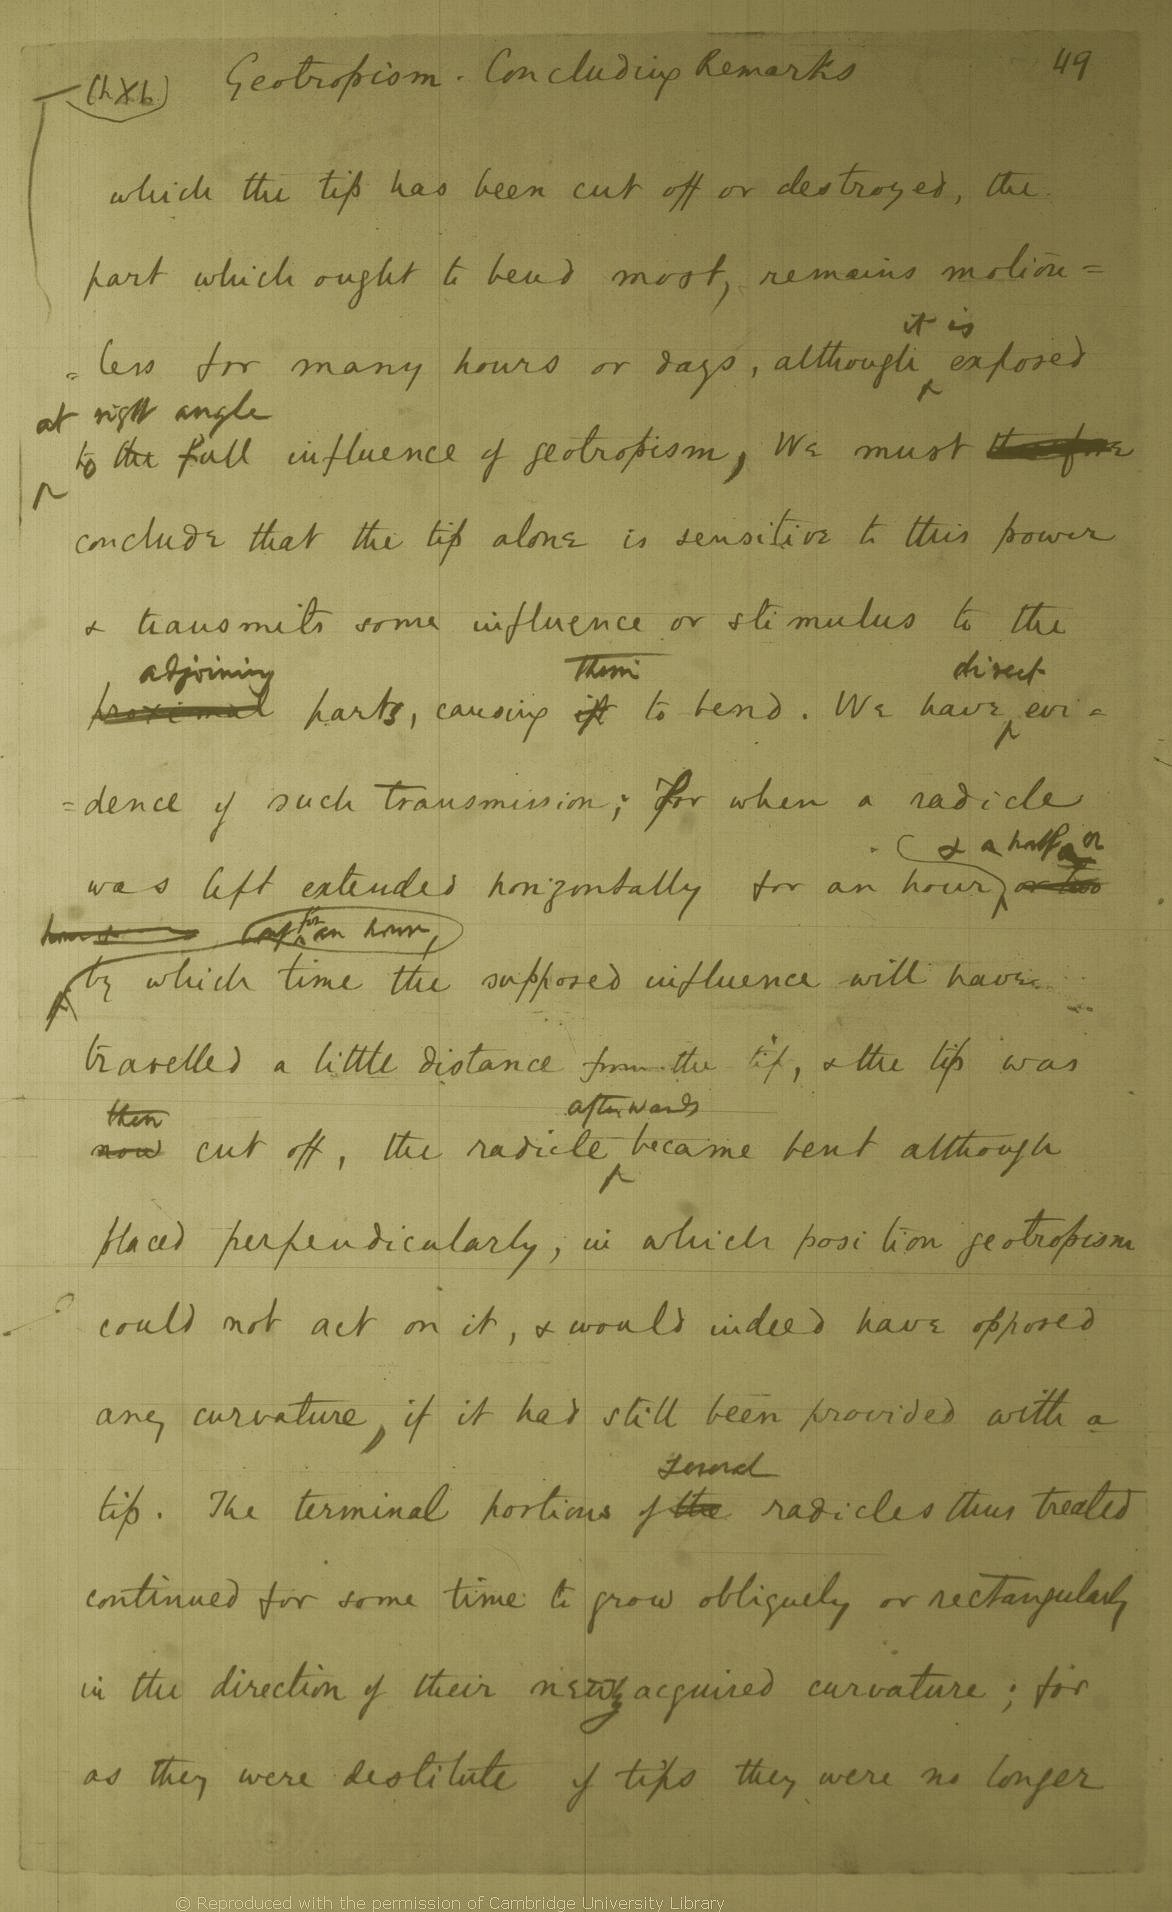 (Ch X b) Geotropism. Concluding Remarks 49
which the tip has been cut off or destroyed, the
part which ought to bend most, remains motion=
it is
=less for many hours or days, although exposed
at right angle
to the full influence of geotropism, We must therefore
conclude that the tip alone is sensitive to this power
& transmits some influence or stimulus to the
adjoining them direct
proximal parts, causing it to bend. We have evi=
=dence of such transmission; for when a radicle
& a half or
was left extended horizontally for an hour, or two
for an hour,
by which time the supposed influence will have
travelled a little distance from the tip, & the tip was
then afterwards
now cut off, the radicle became bent although
placed perpendicularly, in which position geotropism
could not act on it, & would indeed have opposed
any curvature, if it had still been provided with a
several
tip. The terminal portions of the radicles thus treated
continued for some time to grow obliquely or rectangularly
in the direction of their newly acquired curvature; for
as they were destitute of tips they were no longer
© Reproduced with the permission of Cambridge University Library